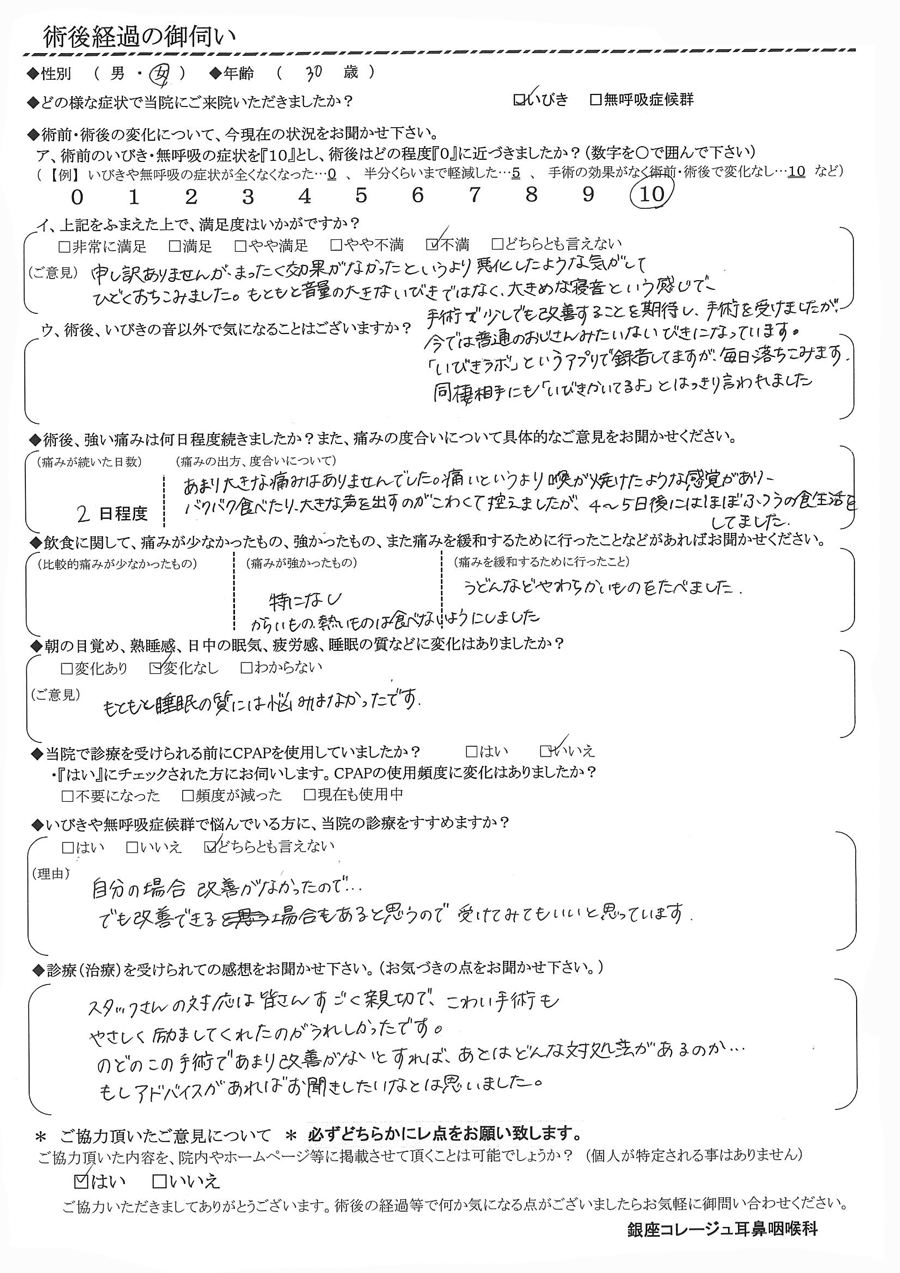 術後経過の御伺い
◆性別 ( 男 ・ 女 ) ◆年齢 ( 30 歳 )
◆どの様な症状で当院にご来院いただきましたか? ☑いびき □無呼吸症候群
◆術前・術後の変化について、今現在の状況をお聞かせ下さい。
ア、術前のいびき・無呼吸の症状を『10』とし、術後はどの程度『0』に近づきましたか?(数字を○で囲んで下さい)
(【例】いびきや無呼吸の症状が全くなくなった…0 、 半分くらいまで軽減した…5 、 手術の効果がなく術前・術後で変化なし…10 など)
0 1 2 3 4 5 6 7 8 9 10
イ、上記をふまえた上で、満足度はいかがですか?
□非常に満足 □満足 □やや満足 □やや不満 ☑不満 □どちらとも言えない
(ご意見) 申し訳ありませんが、まったく効果がなかったというより悪化したような気がして
ひどくおちこみました。もともと音量の大きないびきではなく、大きめな寝音という感じで、
手術で少しでも改善することを期待し、手術を受けましたが、
ウ、術後、いびきの音以外で気になることはございますか?
今では普通のおじさんみたいないびきになっています。
「いびきラボ」というアプリで録音してますが、毎日落ちこみます。
同棲相手にも「いびきかいてるよ」とはっきり言われました
◆術後、強い痛みは何日程度続きましたか?また、痛みの度合いについて具体的なご意見をお聞かせください。
(痛みが続いた日数) (痛みの出方、度合いについて)
あまり大きな痛みはありませんでした。痛いというより喉が焼けたような感覚があり、
2 日程度 バクバク食べたり、大きな声を出すのがこわくて控えましたが、4〜5日後にはほぼふつうの食生活を
してました。
◆飲食に関して、痛みが少なかったもの、強かったもの、また痛みを緩和するために行ったことなどがあればお聞かせください。
(比較的痛みが少なかったもの) (痛みが強かったもの) (痛みを緩和するために行ったこと)
うどんなどやわらかいものをたべました。
特になし
からいもの、熱いものは食べないようにしました
◆朝の目覚め、熟睡感、日中の眠気、疲労感、睡眠の質などに変化はありましたか?
□変化あり ☑変化なし □わからない
(ご意見) もともと睡眠の質には悩みはなかったです。
◆当院で診療を受けられる前にCPAPを使用していましたか? □はい ☑いいえ
・『はい』にチェックされた方にお伺いします。CPAPの使用頻度に変化はありましたか?
□不要になった □頻度が減った □現在も使用中
◆いびきや無呼吸症候群で悩んでいる方に、当院の診療をすすめますか?
□はい □いいえ ☑どちらとも言えない
(理由) 自分の場合 改善がなかったので…
でも改善できると思う場合もあると思うので 受けてみてもいいと思っています。
◆診療(治療)を受けられての感想をお聞かせ下さい。(お気づきの点をお聞かせ下さい。)
スタッフさんの対応は皆さんすごく親切で、こわい手術も
やさしく励ましてくれたのがうれしかったです。
のどのこの手術であまり改善がないとすれば、あとはどんな対処法があるのか…
もしアドバイスがあればお聞きしたいなとは思いました。
＊ ご協力頂いたご意見について ＊ 必ずどちらかにレ点をお願い致します。
ご協力頂いた内容を、院内やホームページ等に掲載させて頂くことは可能でしょうか? (個人が特定される事はありません)
☑はい □いいえ
ご協力いただきましてありがとうございます。術後の経過等で何か気になる点がございましたらお気軽に御問い合わせください。
銀座コレージュ耳鼻咽喉科